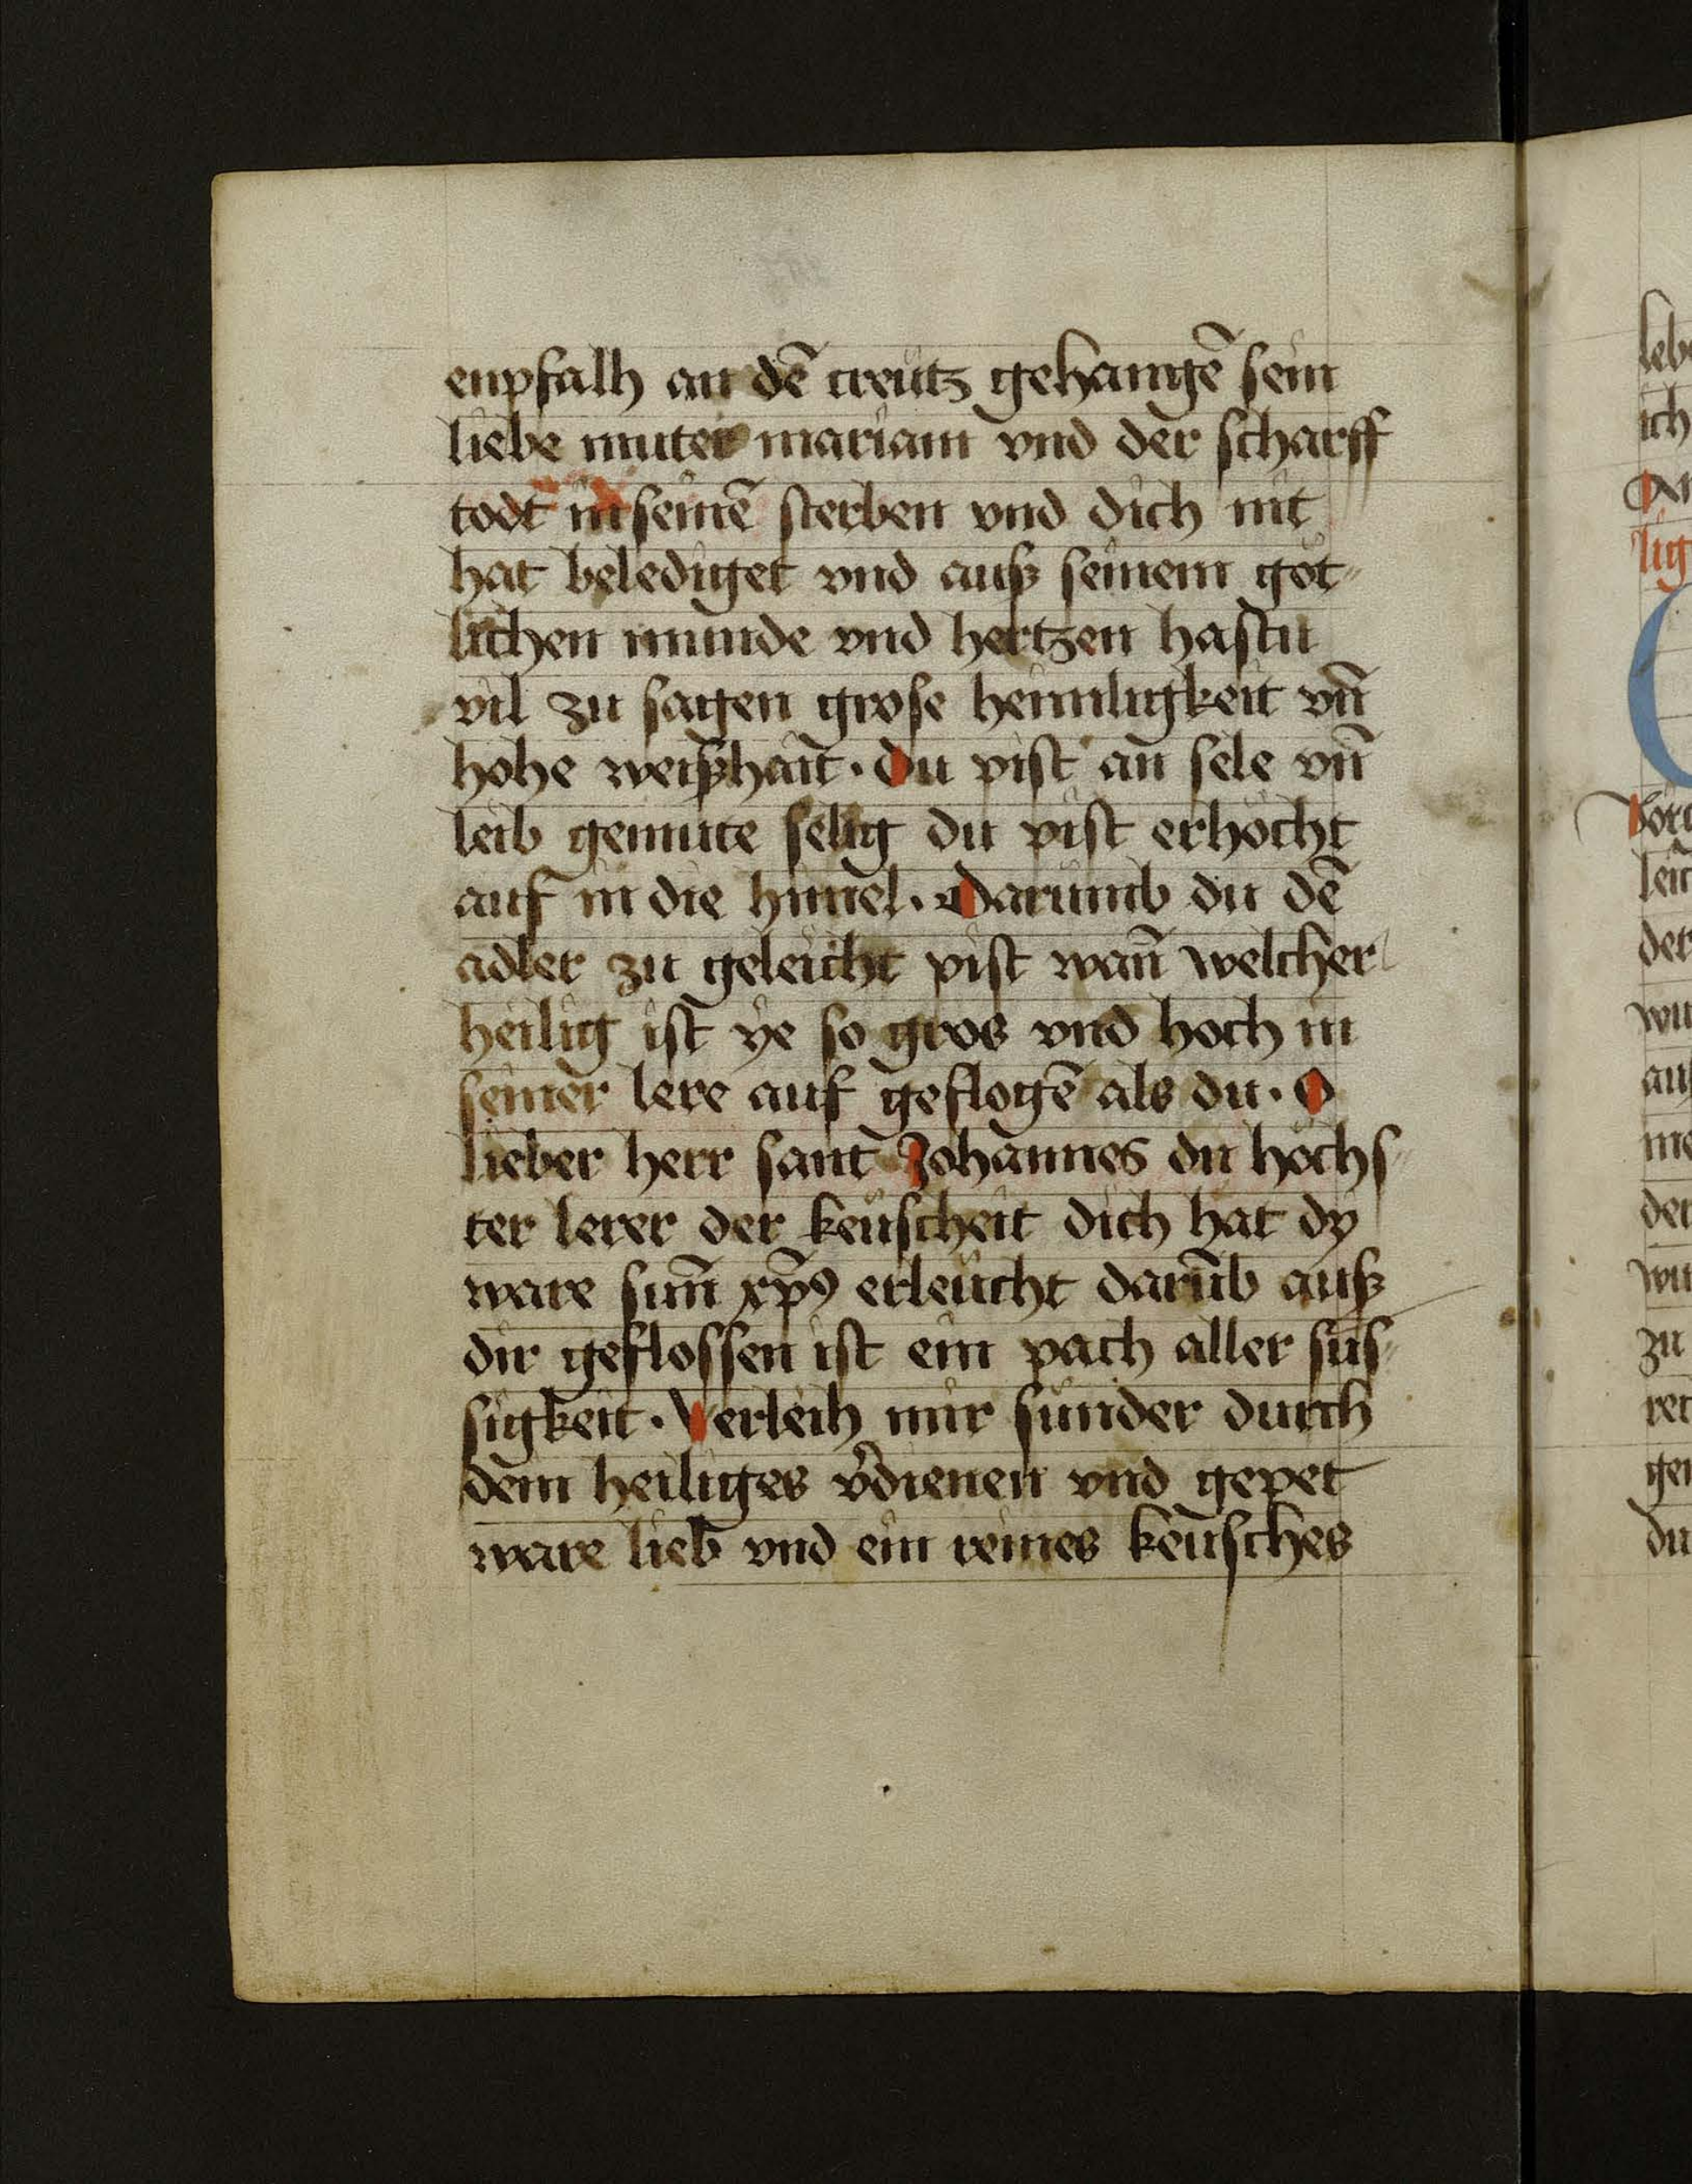 enpfalh an dē creutz gehangē sein
liebe muter mariam vnd der scharff
todt in seinē sterben vnd dich nit
hat belediget vnd auß seinem göt
lichen munde vnd hertzen hastu
vil zu sagen grose heimligkeit vn̄
hohe weißhait · Du pist an sele vn̄
leib gemute selig du pist erhöcht
auf in die himel · Darumb du dē
adler zu geleicht pist wan̄ welcher
heilig ist ye so gros vnd hoch in
seiner lere auf geflogē als du · O
lieber herr sant Johannes du höchs
ter lerer der keuscheit dich hat dy
ware sun̄ xp̄ꝰ erleucht darūb auß
dir geflossen ist ein pach aller sus
sigkeit · Verleih mir sunder durch
dein heiliges v̾dienen vnd gepet
ware lieb vnd ein reines keusches